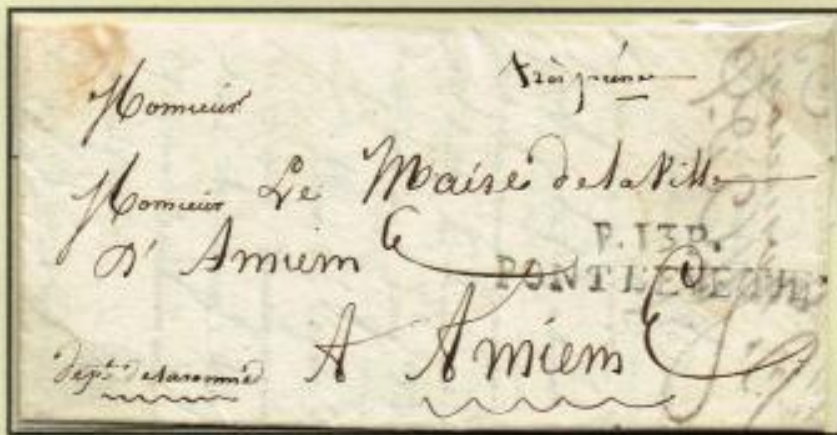 très pressée
Monsieur
Monsieur Le Maire de la Ville
d'Amiens
P.13.P.
PONT L'EVEQUE
A Amiens
dept de la somme